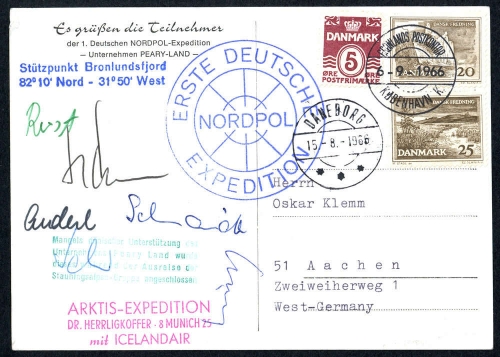 Es grüßen die Teilnehmer
der 1. Deutschen NORDPOL-Expedition
— Unternehmen PEARY-LAND —
Stützpunkt Bronlundsfjord
82°10' Nord - 31°50' West
ERSTE DEUTSCHE
NORDPOL
EXPEDITION
DANMARK
5
ØRE ØRE
POSTFRIMÆRKE
DANSK FREDNING
20
GRØNLANDS POSTKONTOR
6-9.1966
KØBENHAVN K.
DANSK FREDNING
DANMARK 25
DANEBORG
15-8-1966
Anderl Schmidt
Unterstützung
Land wurde
der Anreise der
angeschlossen
ARKTIS-EXPEDITION
DR. HERRLIGKOFFER · 8 MUNICH 25
mit ICELANDAIR
Herrn
Oskar Klemm
51 Aachen
Zweiweiherweg 1
West-Germany